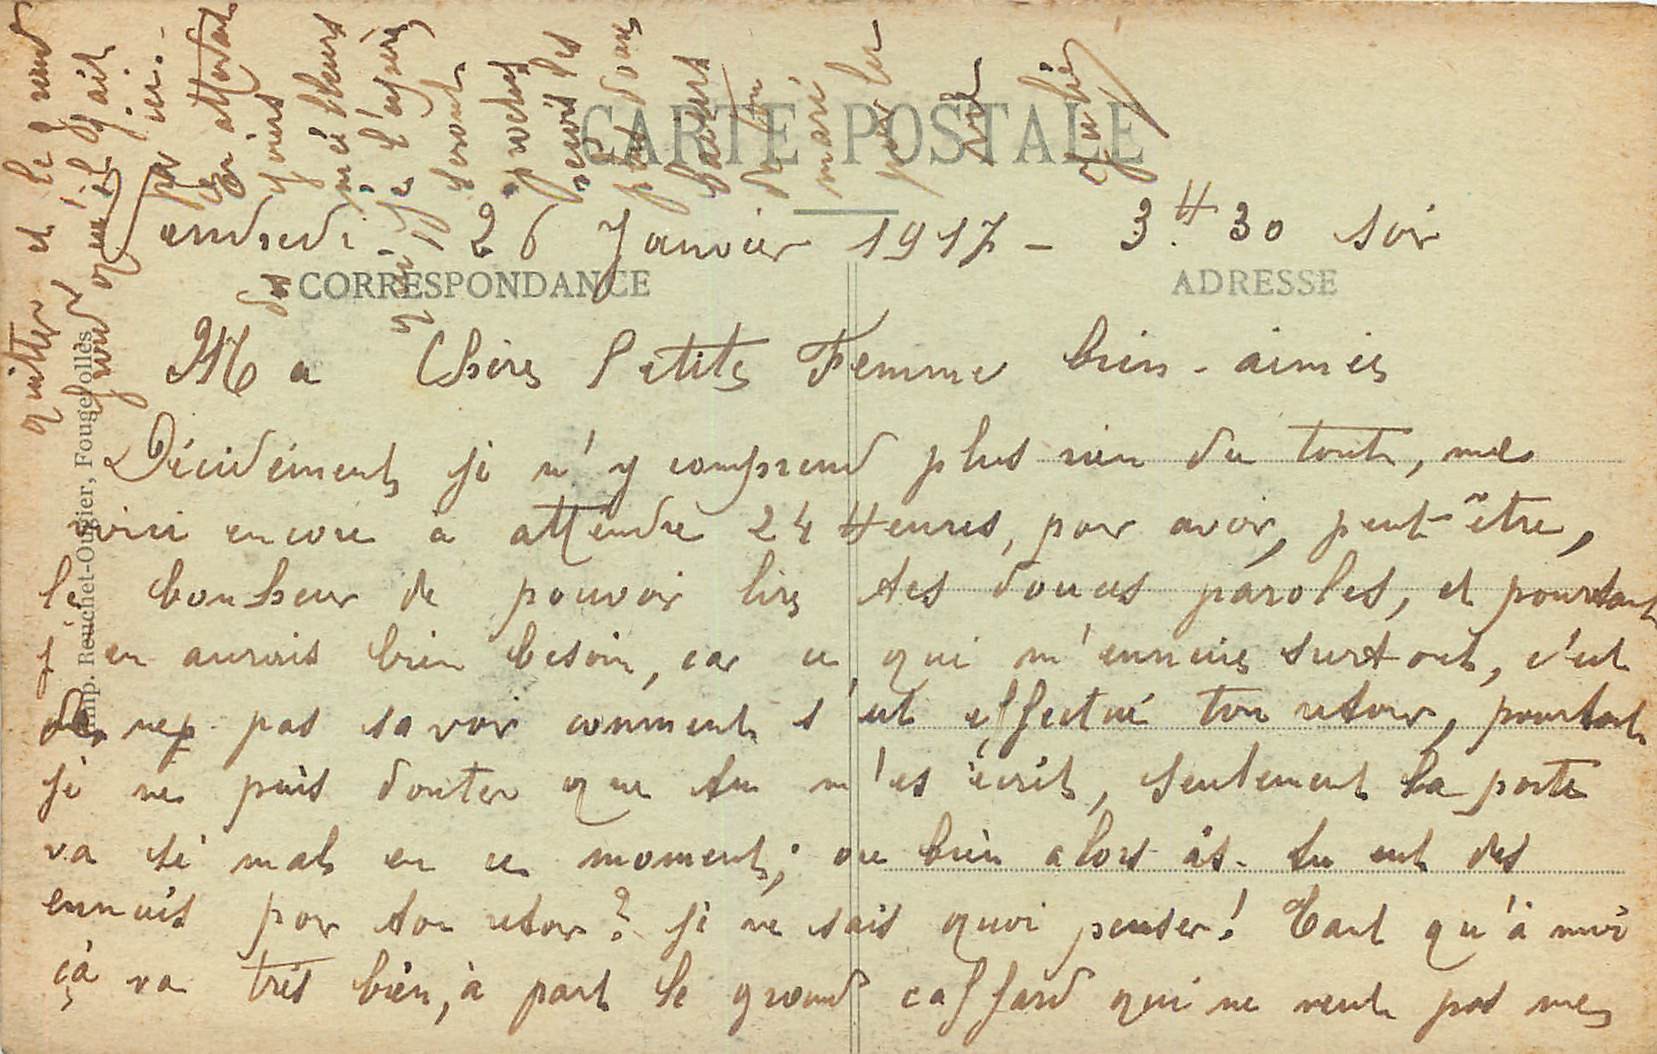 CARTE POSTALE
Vendredi 26 Janvier 1917 - 3H30 soir
CORRESPONDANCE
ADRESSE
Ma Chère Petite Femme bien-aimée
Décidément je n'y comprend plus rien du tout, me
voici encore à attendre 24 Heures, por avoir, peut-être,
le bonheur de pouvoir lire tes douces paroles, et pourtant
j'en aurais bien besoin, car ce qui m'ennuie surtout, c'est
de ne pas savoir comment s'est effectué ton retour, pourtant
je ne puis douter que tu m'es écrit, seulement la poste
va si mal en ce moment; ou bien alors as-tu eut des
ennuis por ton retor? je ne sais quoi penser! Tant qu'à moi
çà va très bien, à part le grand caffard qui ne veut pas me
quitter et le grand
froid qu'il fait
par ici.-
En attendant
des jours
meilleurs
qui je l'espère
seront
proches
reçois les
plus doux
baisers
de ton
mari
pour la
vie
Imp. Reuchet-Ougier, Fougerolles